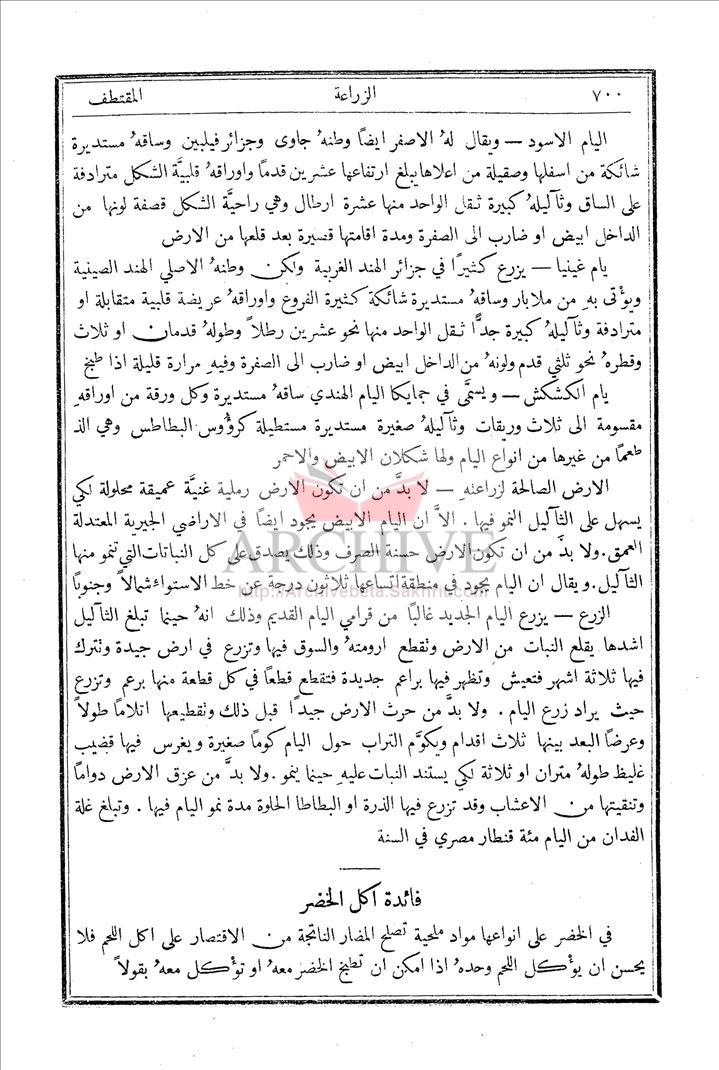 ٧٠٠ الزراعة المقتطف
اليام الاسود — ويقال لهُ الاصفر ايضًا وطنهُ جاوى وجزائر فيلبين وساقهُ مستديرة
شائكة من اسفلها وصقيلة من اعلاها يبلغ ارتفاعها عشرين قدمًا واوراقهُ قلبيَّة الشكل مترادفة
على الساق وثآليلهُ كبيرة ثقل الواحد منها عشرة ارطال وهي راحيَّة الشكل قصفة لونها من
الداخل ابيض او ضارب الى الصفرة ومدة اقامتها قصيرة بعد قلعها من الارض
يام غينيا — يزرع كثيرًا في جزائر الهند الغربية ولكن وطنهُ الاصلي الهند الصينية
ويؤتى بهِ من ملابار وساقهُ مستديرة شائكة كثيرة الفروع واوراقهُ عريضة قلبية متقابلة او
مترادفة وثآليلهُ كبيرة جدًّا ثقل الواحد منها نحو عشرين رطلاً وطولهُ قدمان او ثلاث
وقطرهُ نحو ثلثي قدم ولونهُ من الداخل ابيض او ضارب الى الصفرة وفيهِ مرارة قليلة اذا طبخ
يام الكشكش — ويسمَّى في جمايكا اليام الهندي ساقهُ مستديرة وكل ورقة من اوراقهِ
مقسومة الى ثلاث وريقات وثآليلهُ صغيرة مستديرة مستطيلة كرؤُوس البطاطس وهي الذ
طعمًا من غيرها من انواع اليام ولها شكلان الابيض والاحمر
الارض الصالحة لزراعتهِ — لا بدَّ من ان تكون الارض رملية غنيَّة عميقة محلولة لكي
يسهل على الثآليل النمو فيها . الاَّ ان اليام الابيض يجود ايضًا في الاراضي الجيرية المعتدلة
العمق. ولا بدَّ من ان تكون الارض حسنة الصرف وذلك يصدق على كل النباتات التي تنمو منها
الثآليل. ويقال ان اليام يجود في منطقة اتساعها ثلاثون درجة عن خط الاستواء شمالاً وجنوبًا
الزرع — يزرع اليام الجديد غالبًا من قرامي اليام القديم وذلك انهُ حينما تبلغ الثآليل
اشدها يقلع النبات من الارض وتقطع ارومتهُ والسوق فيها وتزرع في ارض جيدة وتترك
فيها ثلاثة اشهر فتعيش وتظهر فيها براعم جديدة فتقطع قطعًا في كل قطعة منها برعم وتزرع
حيث يراد زرع اليام . ولا بدَّ من حرث الارض جيدًا قبل ذلك وتقطيعها اتلامًا طولاً
وعرضًا البعد بينها ثلاث اقدام ويكوَّم التراب حول اليام كومًا صغيرة ويغرس فيها قضيب
غليظ طولهُ متران او ثلاثة لكي يستند النبات عليهِ حينما ينمو . ولا بدَّ من عزق الارض دوامًا
وتنقيتها من الاعشاب وقد تزرع فيها الذرة او البطاطا الحلوة مدة نمو اليام فيها . وتبلغ غلة
الفدان من اليام مئة قنطار مصري في السنة
فائدة اكل الخضر
في الخضر على انواعها مواد ملحية تصلح المضار الناتجة من الاقتصار على اكل اللحم فلا
يحسن ان يؤْكل اللحم وحدهُ اذا امكن ان تطبخ الخضر معهُ او تؤْكل معهُ بقولاً
ARCHIVE
http://Archivebeta.Sakhrit.com